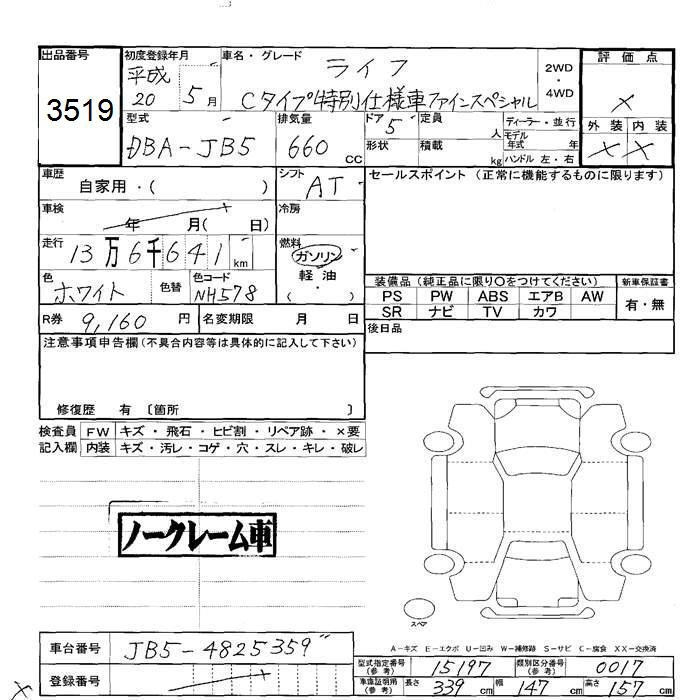 出品番号
3519
初度登録年月
平成
20 5月
車名・グレード
ライフ
Cタイプ特別仕様車ファインスペシャル
2WD
・
4WD
評価点
×
外装 内装
× ×
型式
DBA-JB5
排気量
660 cc
ドア 5
形状
定員 人
積載 kg
ディーラー・並行
モデル年式 年
ハンドル 左・右
車歴
自家用・( )
シフト AT
セールスポイント (正常に機能するものに限ります)
車検
年 月( 日)
冷房
走行
13万6千641 km
燃料
ガソリン
軽油
( )
色
ホワイト
色替
色コード
NH578
装備品 (純正品に限り○をつけてください)
PS PW ABS エアB AW
SR ナビ TV カワ
新車保証書
有・無
R券 9,160 円
名変期限 月 日
後日品
注意事項申告欄 (不具合内容等は具体的に記入して下さい)
修復歴 有 〔箇所 〕
検査員 FW キズ・飛石・ヒビ割・リペア跡・×要
記入欄 内装 キズ・汚レ・コゲ・穴・スレ・キレ・破レ
ノークレーム車
スペア
A-キズ E-エクボ U-凹み W-補修跡 S-サビ C-腐食 XX-交換済
車台番号 JB5-4825359
登録番号
型式指定番号(参考) 15197
類別区分番号(参考) 0017
車庫証明用(参考) 長さ 339 cm 幅 147 cm 高さ 157 cm